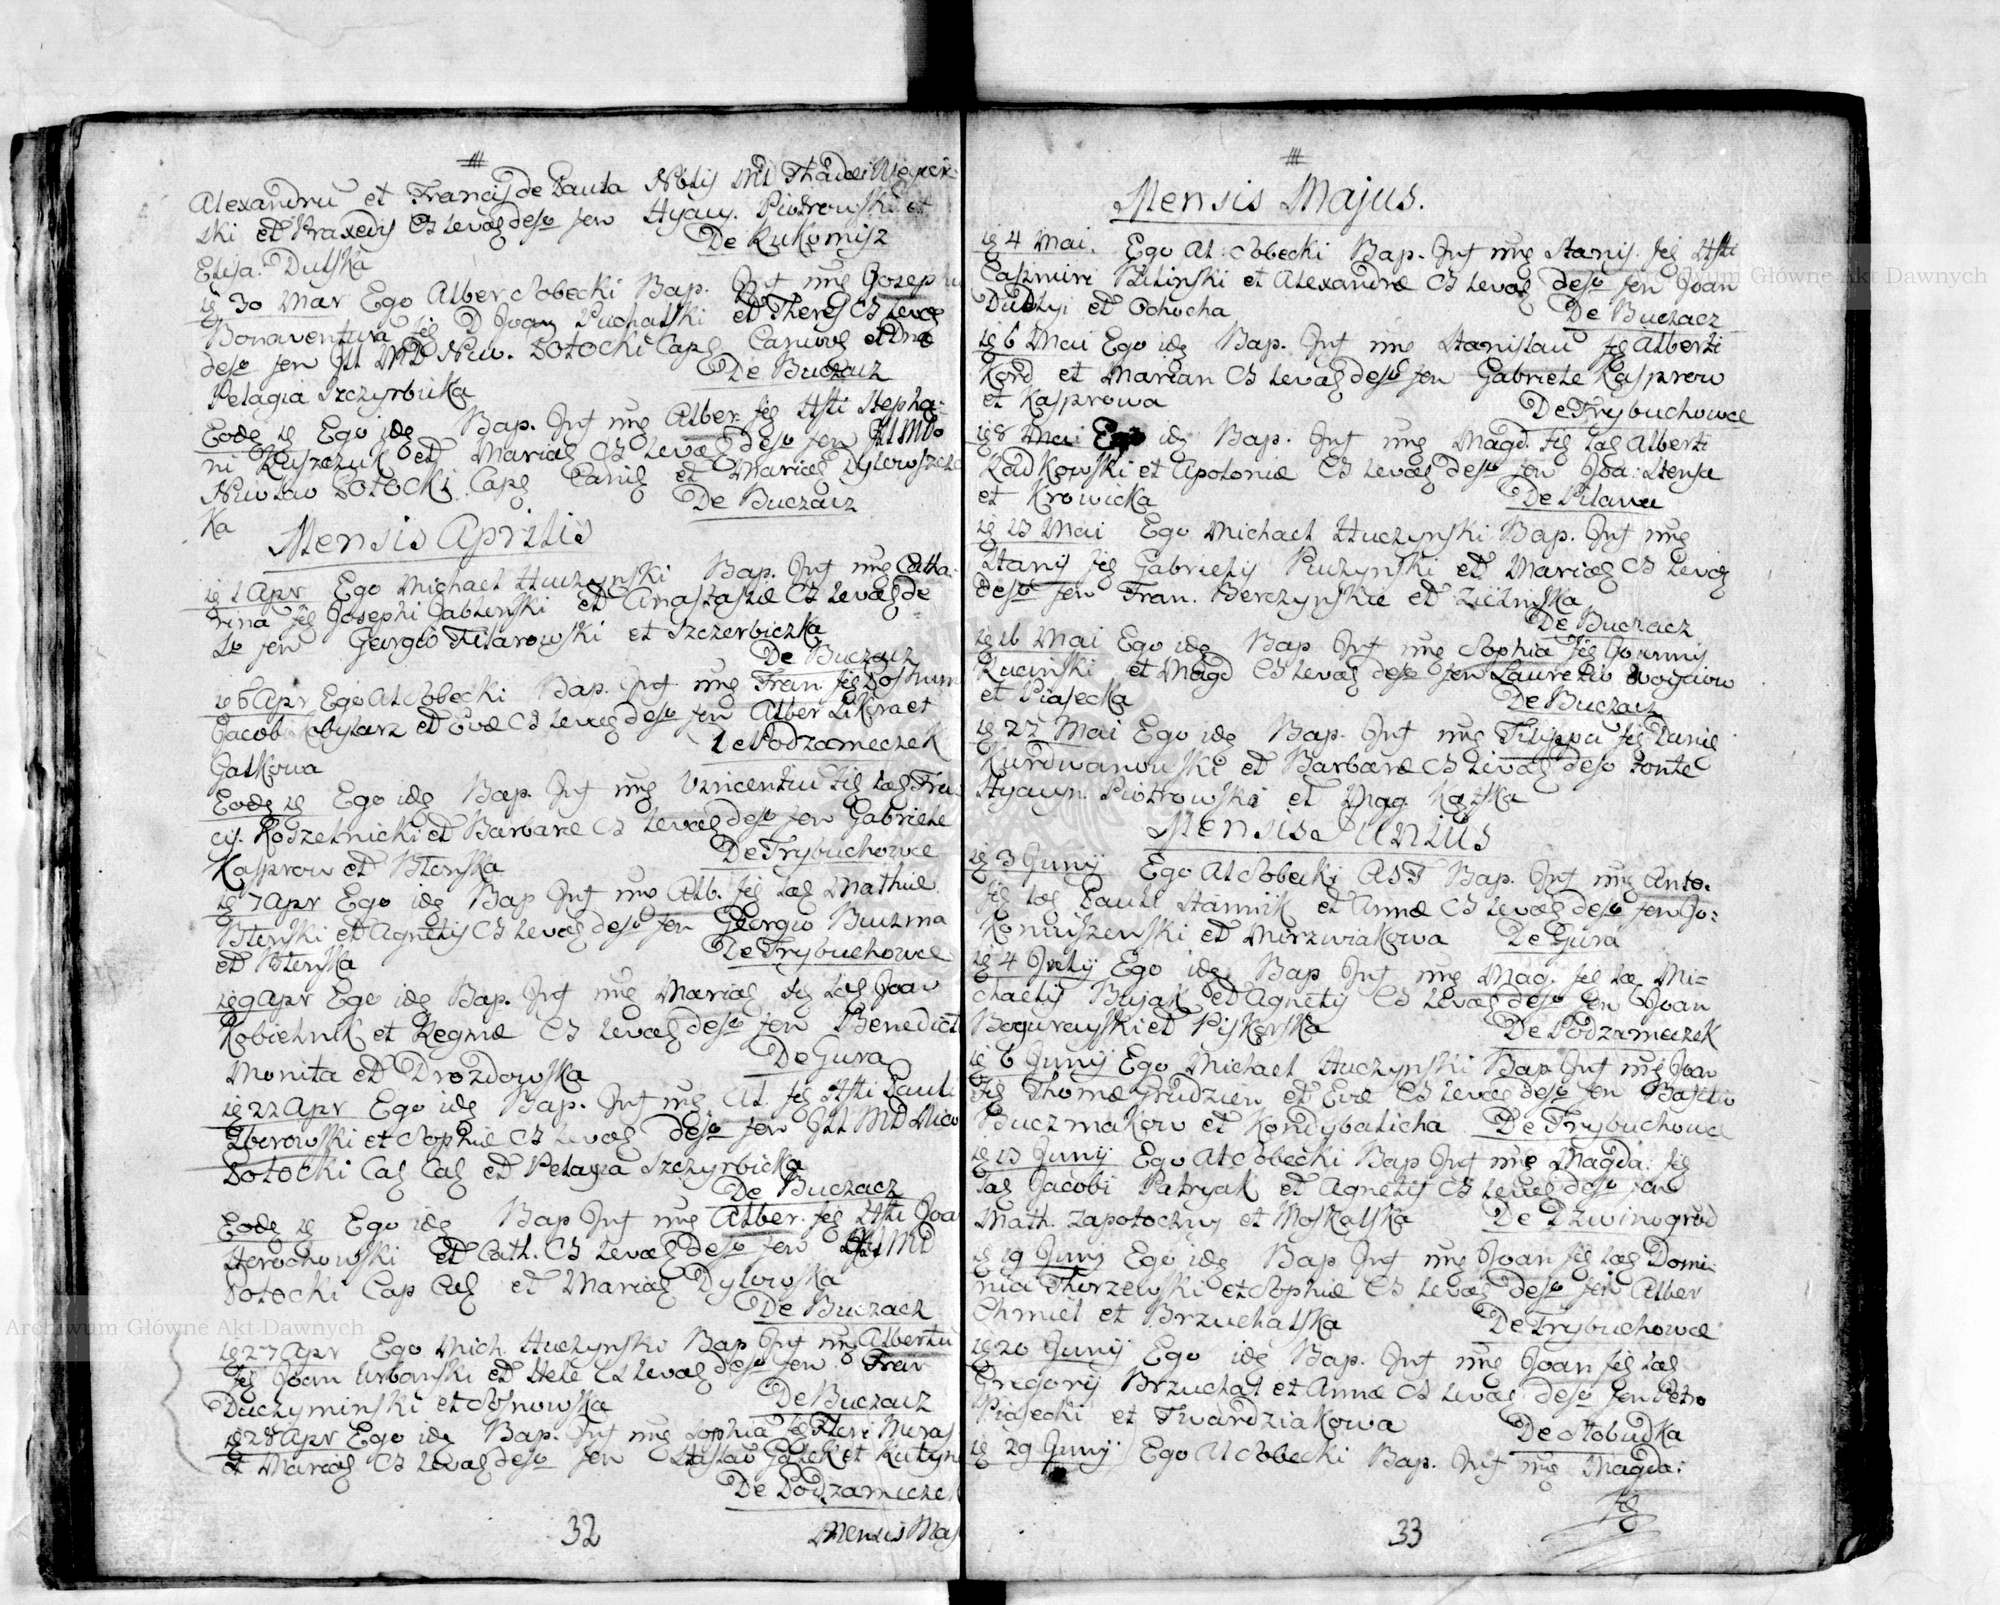 Alexandrū et Francis de Paula Nobis Md Thadei
ski et Praxedis CB levaes deso fen Hyacy. Piotrowski et
De Rukomisz
Eliza. Dulska
ie 30 Mar Ego Alber Sobecki Bap. Inf nūe Joseph
Bonaventura feg D Joan Puchalski et Theres CB levaes
deso fen Ill MD Nico. Potocki Cape Caniove et Dnæ
De Buczacz
Pelagia Szczyrbicka
Eode ie Ego ide Bap. Inf nūe Alber. feg Hsti Stepha:
ni Kuszczuk et Mariae CB levaes deso fen Ill MDo
Nicolao Potocki Cape Canie et Mariae Dylowszcz
De Buczacz
Ka
Mensis Aprilis
ie 1 Apr Ego Michael Huczynski Bap. Inf nūe Catha:
rina feg Josephi Jablonski et Anastasiæ CB levaes de
so fen Georgio Filarowski et Szczerbiczka
De Buczacz
ie 6 Apr Ego Al Sobecki Bap. Inf nūe Fran. feg Postum
Jacob Kobylarz et Evæ CB levaes deso fen Alber Sikora et
De Podzameczek
Galkowa
Eode ie Ego ide Bap. Inf nūe Vincentiu feg Lae Fran
cis. Koszelnicki et Barbaræ CB levaes deso fen Gabriele
De Trybuchowce
Kasprow et Blenska
ie 7 Apr Ego ide Bap Inf nūe Alb. feg Lae Mathiæ
Blenski et Agnetis CB levaes deso fen Georgio Buczma
De Trybuchowce
et Blenska
ie 9 Apr Ego ide Bap. Inf nūe Mariae feg Lae Joan
Kobielnik et Reginæ CB levaes deso fen Benedict
De Gura
Monita et Drozdowska
ie 22 Apr Ego ide Bap. Inf nūe Al. feg Hsti Pauli
Zborowski et Sophiæ CB levaes deso fen Ill MD Nico
Potocki Cae Cae et Pelagia Szczyrbicka
De Buczacz
Eode ie Ego ide Bap Inf nūe Alber. feg Hsti Joa
Horochowski et Cath. CB levaes deso fen Ill MD
Potocki Cap Cae et Mariae Dylowska
De Buczacz
ie 27 Apr Ego Mich. Huczynski Bap Inf nūe Albertū
feg Joan Urbanski et Hele CB levaes deso fen Fran
Duczyminski et Sosnowska De Buczacz
ie 28 Apr Ego ide Bap. Inf nūe Sophia feg Petri Muras
et Mariae CB levaes deso fen Stislao Golek et Kutyn
De Podzameczek
32
Mensis Maj
Mensis Majus.
ie 4 Mai. Ego Al: Sobecki Bap. Inf nūe Stanis. feg Hsti
Casimiri Bilinski et Alexandræ CB levaes deso fen Joan
Dudtyi et Ochocha
De Buczacz
ie 6 Mai Ego ide Bap. Inf nūe Stanislau feg Alberti
Kord et Marian CB levaes deso fen Gabriele Kasprow
et Kasprowa
De Trybuchowce
ie 8 Mai Ego ide Bap. Inf nūe Magd. feg Lae Alberti
Radkowski et Apoloniæ CB levaes deso fen Joa: Stensa
et Krowicka
De Pilawa
ie 13 Mai Ego Michael Huczynski Bap. Inf nūe
Stanis feg Gabrielis Ruczynski et Mariae CB levaes
deso fen Fran. Berczynskie et Zielinska
De Buczacz
ie 16 Mai Ego ide Bap Inf nūe Sophia feg Joannis
Rucinski et Magd CB levaes deso fen Lauretio
et Piasecka
De Buczacz
ie 22 Mai Ego ide Bap. Inf nūe Filippū feg Danie
Kurdwanowski et Barbaræ CB levaes deso fonte
Hyacyn. Piotrowski et Magg. Kątska
Mensis Junius
ie 3 Junij Ego Al Sobecki AST Bap. Inf nūe Anto.
feg Lae Pauli Stannik et Annæ CB levaes deso fen Jo:
Komiszenski et Mierzwiakowa De Gura
ie 4 Julij Ego ide Bap Inf nūe Mag. feg Læ Mi-
chaelis Bujak et Agnetis CB levaes deso fen Joan
Bogurayski et Piskorska
De Podzameczek
ie 6 Junij Ego Michael Huczynski Bap Inf nūe Joan
feg Thomæ Grudzien et Evæ CB levaes deso fen Basilio
Buczmakow et Kondybalicha De Trybuchowce
ie 13 Junij Ego Al Sobecki Bap Inf nūe Magda: feg
Lae Jacobi Patryak et Agnetis CB levaes deso fen
Math. Zapotoczny et Moskalska De Dzwinogrod
ie 19 Junij Ego ide Bap Inf nūe Joan feg Lae Domi-
nici Thorzewski et Sophiæ CB levaes deso fen Alber
Chmiel et Brzuchalska
De Trybuchowce
ie 20 Junij Ego ide Bap. Inf nūe Joan feg Lae
Gregorij Brzuchal et Annæ CB levaes deso fen Petro
Piasecki et Twardziakowa
De Slobudka
ie 29 Junij Ego Al Sobecki Bap. Inf nūe Magda:
feg
33
Archiwum Główne Akt Dawnych
Archiwum Główne Akt Dawnych